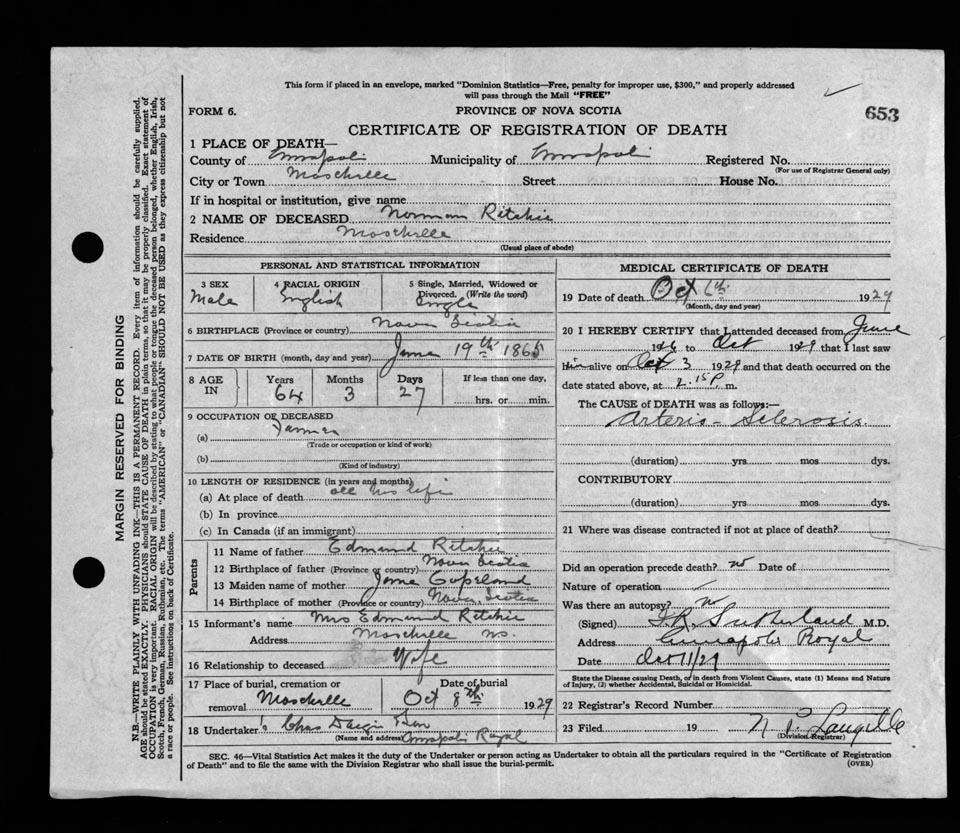 This form if placed in an envelope, marked "Dominion Statistics—Free, penalty for improper use, $300," and properly addressed
will pass through the Mail "FREE"
FORM 6.
PROVINCE OF NOVA SCOTIA
653
CERTIFICATE OF REGISTRATION OF DEATH
1 PLACE OF DEATH—
County of Annapolis Municipality of Annapolis Registered No.
(For use of Registrar General only)
City or Town Moschelle Street House No.
If in hospital or institution, give name
2 NAME OF DECEASED Norman Ritchie
Residence Moschelle
(Usual place of abode)
PERSONAL AND STATISTICAL INFORMATION
3 SEX 4 RACIAL ORIGIN 5 Single, Married, Widowed or
Divorced. (Write the word)
Male English Single
6 BIRTHPLACE (Province or country) Nova Scotia
7 DATE OF BIRTH (month, day and year) June 19th 1865
8 AGE IN Years Months Days If less than one day,
64 3 27 hrs. or min.
9 OCCUPATION OF DECEASED
(a) Farmer
(Trade or occupation or kind of work)
(b)
(Kind of industry)
10 LENGTH OF RESIDENCE (in years and months)
(a) At place of death all his life
(b) In province
(c) In Canada (if an immigrant)
Parents
11 Name of father Edmund Ritchie
12 Birthplace of father (Province or country) Nova Scotia
13 Maiden name of mother Jane Copeland
14 Birthplace of mother (Province or country) Nova Scotia
15 Informant's name Mrs Edmund Ritchie
Address Moschelle NS.
16 Relationship to deceased Wife
17 Place of burial, cremation or Date of burial
removal Moschelle Oct 8th 1929
18 Undertaker's Chas Dargie & Son
(Name and address) Annapolis Royal
MEDICAL CERTIFICATE OF DEATH
19 Date of death Oct 6th 1929
(Month, day and year)
20 I HEREBY CERTIFY that I attended deceased from June
1926 to Oct 1929 that I last saw
him alive on Oct 3 1929 and that death occurred on the
date stated above, at 2.15 P. m.
The CAUSE of DEATH was as follows:—
Arterio-Sclerosis
(duration) yrs mos dys.
CONTRIBUTORY
(duration) yrs. mos dys.
21 Where was disease contracted if not at place of death?
Did an operation precede death? no Date of
Nature of operation
Was there an autopsy? no
(Signed) Sutherland M.D.
Address Annapolis Royal
Date Oct 11/29
State the Disease causing Death, or in death from Violent Causes, state (1) Means and Nature
of Injury, (2) whether Accidental, Suicidal or Homicidal.
22 Registrar's Record Number
23 Filed 19 Langille
(Division Registrar)
SEC. 46—Vital Statistics Act makes it the duty of the Undertaker or person acting as Undertaker to obtain all the particulars required in the "Certificate of Registration
of Death" and to file the same with the Division Registrar who shall issue the burial-permit.
(OVER)
MARGIN RESERVED FOR BINDING
N.B.—WRITE PLAINLY WITH UNFADING INK—THIS IS A PERMANENT RECORD. Every item of information should be carefully supplied.
AGE should be stated EXACTLY. PHYSICIANS should STATE CAUSE OF DEATH in plain terms, so that it may be properly classified. Exact statement of
OCCUPATION is very important. RACIAL ORIGIN will be described by stating to what people or tongue the deceased person belonged, whether English, Irish,
Scotch, French, German, Russian, Ruthenian, etc. The terms "AMERICAN" or CANADIAN" SHOULD NOT BE USED as they express citizenship but not
a race or people. See instructions on back of Certificate.